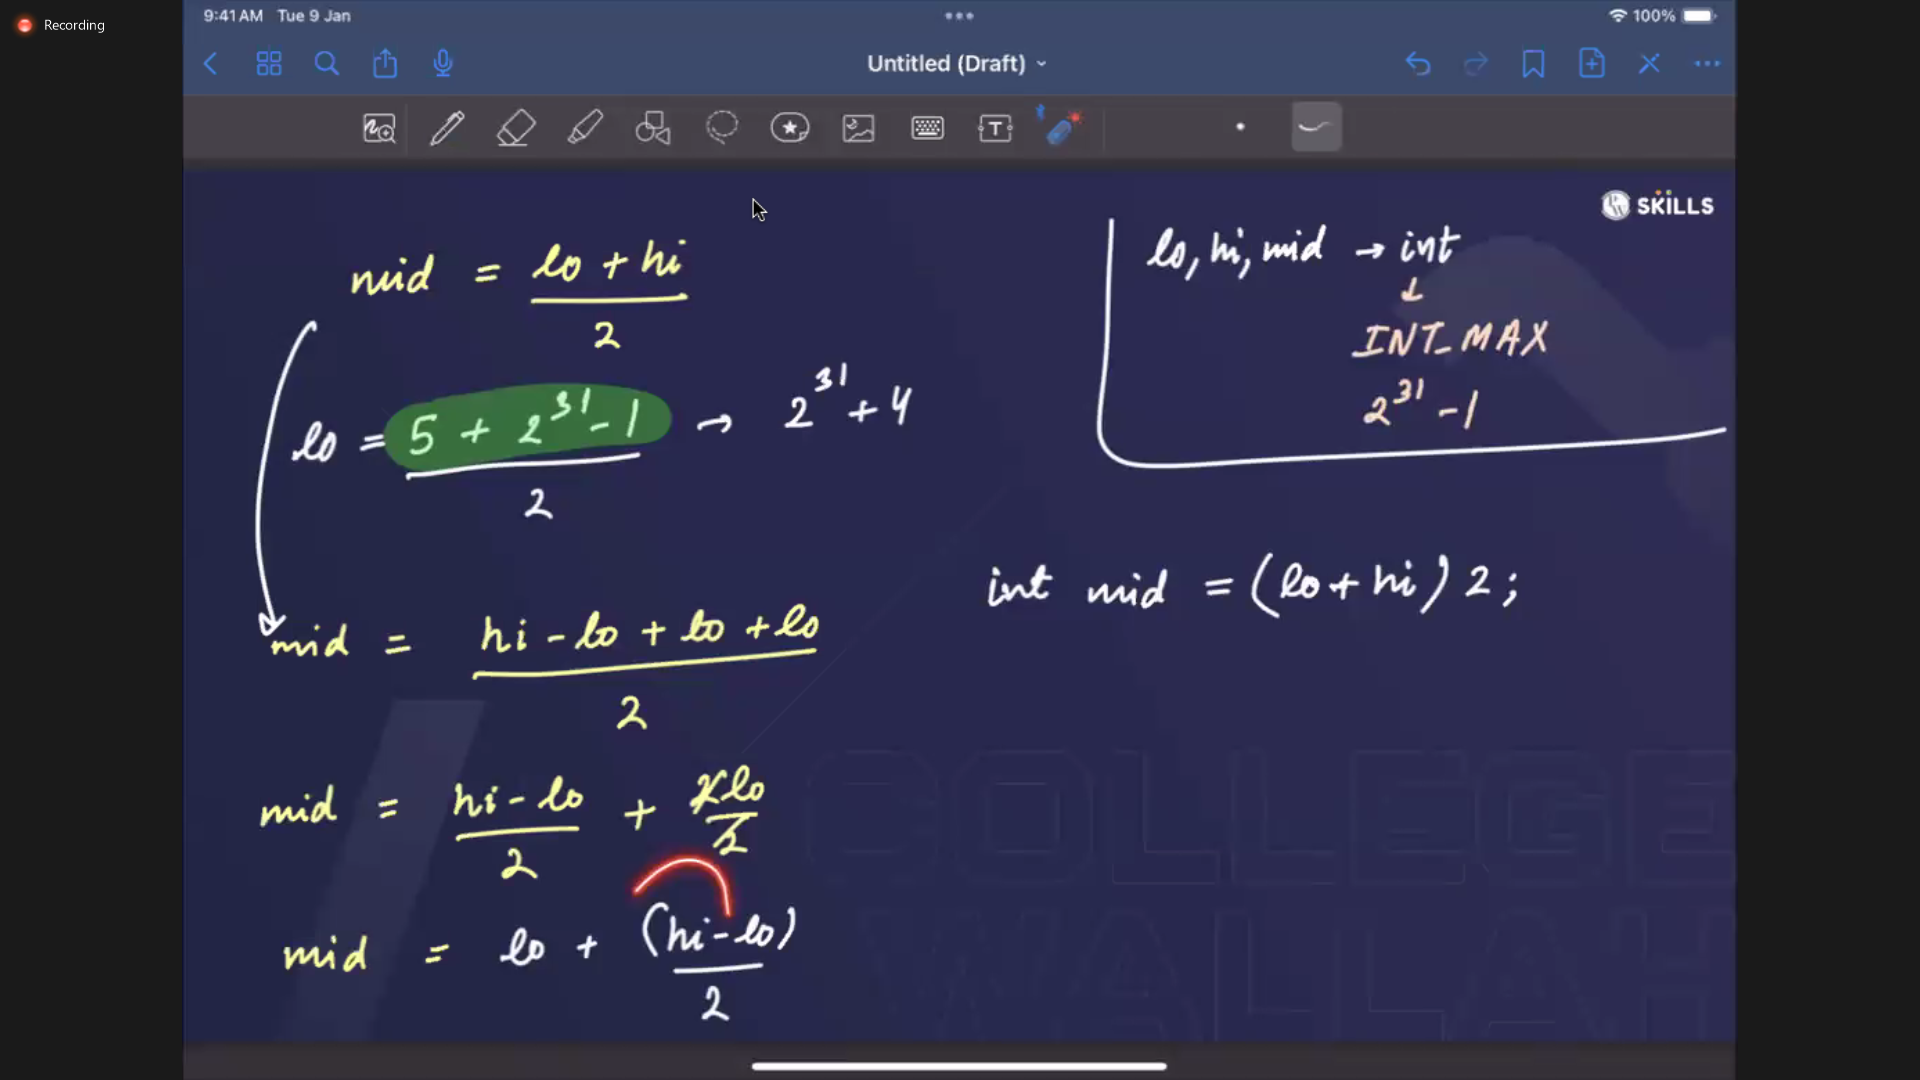 Recording
9:41 AM Tue 9 Jan
100%
Untitled (Draft)
T
SKILLS
mid = lo + hi / 2
lo = 5 + 2^31 - 1 / 2 → 2^31 + 4
mid = hi - lo + lo + lo / 2
mid = hi - lo / 2 + 2lo / 2
mid = lo + (hi - lo) / 2
lo, hi, mid → int
↓
INT_MAX
2^31 - 1
int mid = (lo + hi) 2;
COLLEGE
WALLAH